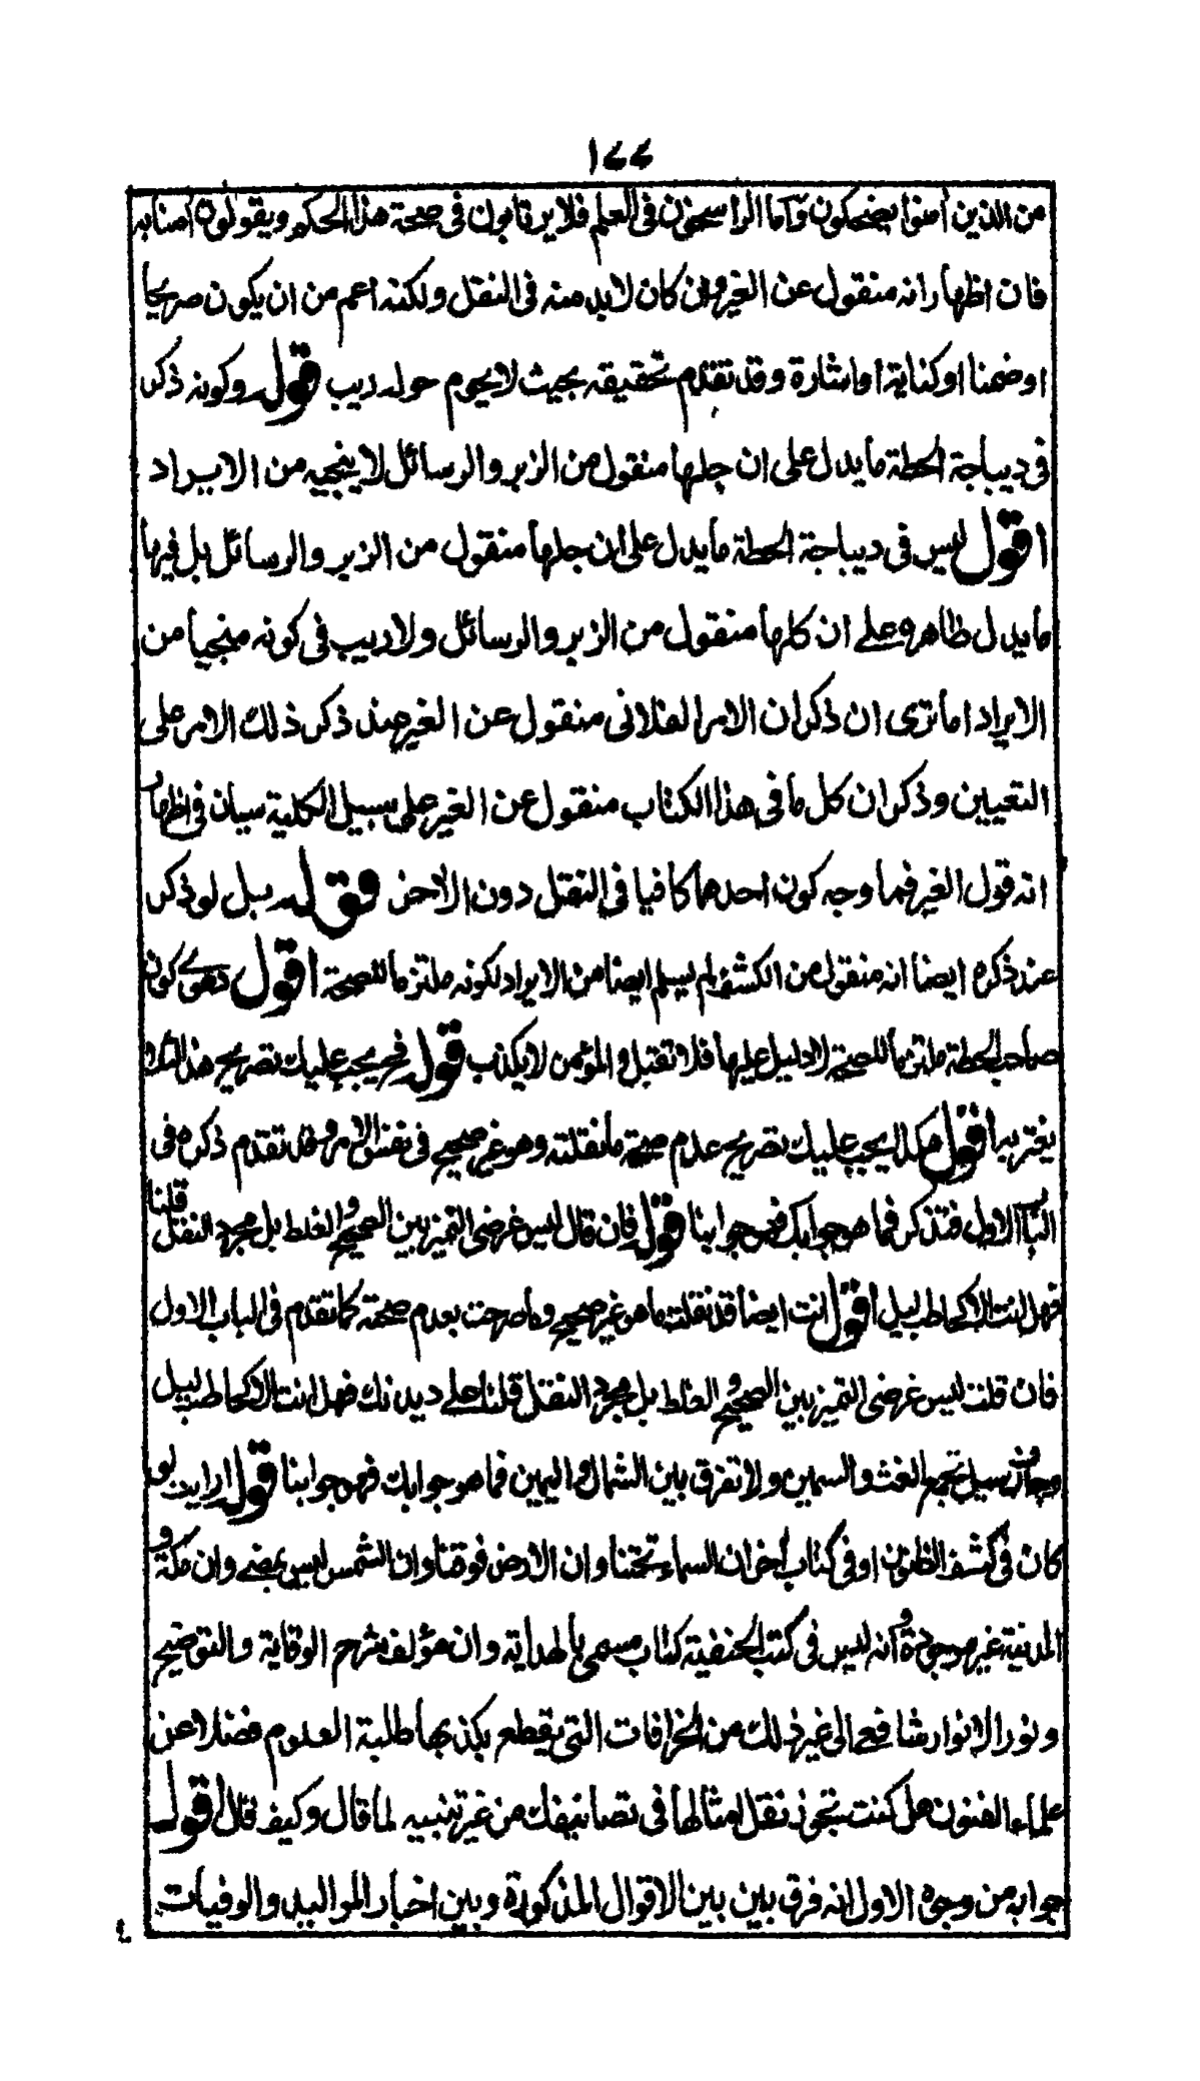 ١٧٧
من الذين آمنوا يضحكون وأما الراسخون في العلم فلا يرتابون في صحة هذا الحكم ويقولون آمنا به
فان اظهار انه منقول عن الغير وان كان لابد منه في النقل ولكنه اعم من ان يكون صريحا
او ضمنا او كناية او اشارة وقد تقدم تحقيقه بحيث لا يحوم حوله ريب قوله وكونه ذكر
في ديباجة الحطة ما يدل على ان جلها منقول من الزبر والرسائل لا ينجيه من الايراد
اقول ليس في ديباجة الحطة ما يدل على ان جلها منقول من الزبر والرسائل بل فيها
ما يدل ظاهره على ان كلها منقول من الزبر والرسائل ولا ريب في كونه منجيا من
الايراد اما ترى ان ذكر ان الامر الفلاني منقول عن الغير عند ذكر ذلك الامر على
التعيين وذكر ان كل ما في هذا الكتاب منقول عن الغير على سبيل الكلية سيان في اظهار
انه قول الغير فما وجه كون احدهما كافيا في النقل دون الاخر قوله بل لو ذكر
عند ذكره ايضا انه منقول من الكشف لم يسلم ايضا من الايراد لكونه ملتزما للصحة اقول دعوى كون
صاحب الحطة ملتزما للصحة لا دليل عليها فلا تقبل والمؤمن لا يكذب قوله فح يجب عليك تصريح هذا لئلا
يغتر به اقول هكذا يجب عليك تصريح عدم صحة ما نقلته وهو غير صحيح في نفس الامر وقد تقدم ذكره في
الباب الاول فتذكر فما هو جوابك فهو جوابنا قوله فان قال ليس غرضي التميز بين الصحيح والغلط بل مجرد النقل قلنا
فهل انت الا كحاطب ليل اقول انت ايضا قد نقلت ما هو غير صحيح وما صرحت بعدم صحته كما تقدم في الباب الاول
فان قلت ليس غرضي التميز بين الصحيح والغلط بل مجرد النقل قلنا على ديدنك فهل انت الا كحاطب ليل
سيل تجمع الغث والسمين ولا تفرق بين الشمال واليمين فما هو جوابك فهو جوابنا قوله ارايد لو
كان في كشف الظنون او في كتاب اخر ان السماء تحتنا وان الارض فوقنا وان الشمس ليس بمضيء وان مكة و
المدنية غير موجودة وانه ليس في كتب الحنفية كتاب مسمى بالهداية وان مؤلف شرح الوقاية والتوضيح
ونور الانوار شافعي الى غير ذلك من الخرافات التي يقطع بكذبها طلبة العلوم فضلا عن
علماء الفنون هل كنت تجوز نقل امثالها في تصانيفك من غير تنبيه لما قال وكيف قال اقول
جوابه من وجوه الاول انه فرق بين بين الاقوال المذكورة وبين اخبار المواليد والوفيات